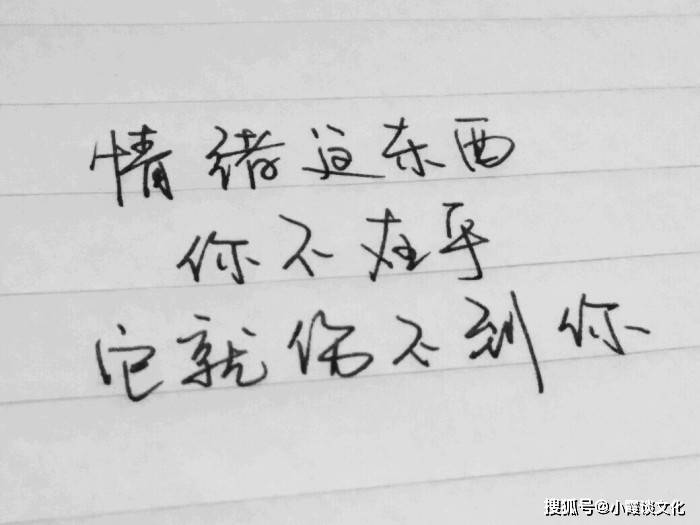 情绪这东西
你不在乎
它就伤不到你
搜狐号@小霞谈文化